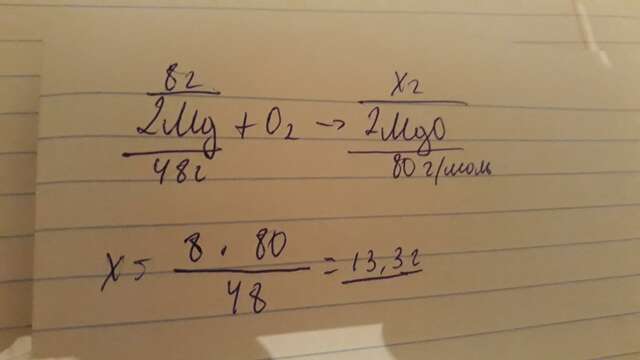 8г xг
2Mg + O₂ → 2MgO
48г 80 г/моль
x = 8 · 80 / 48 = 13,3г